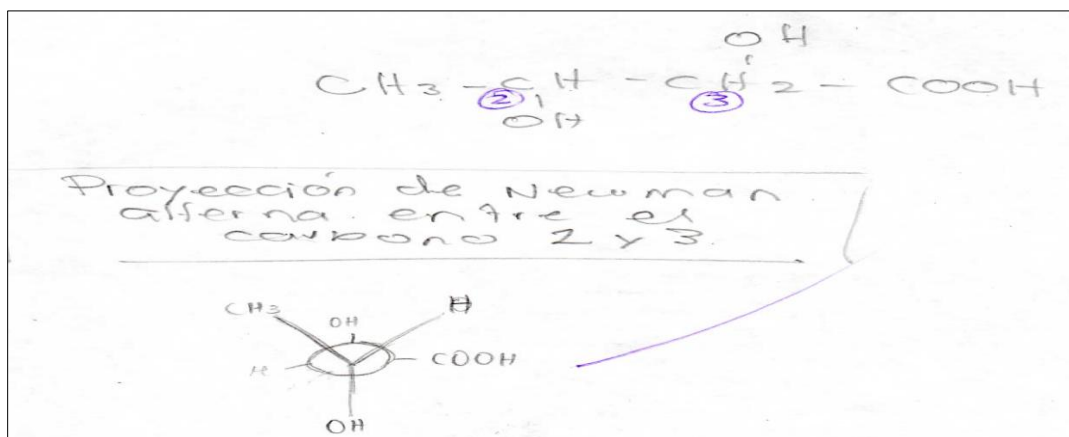 OH
CH3 - CH - CH2 - COOH
2 3
OH
Proyección de Newman
alterna. entre el
carbono 2 y 3.
CH3 H
OH
H COOH
OH